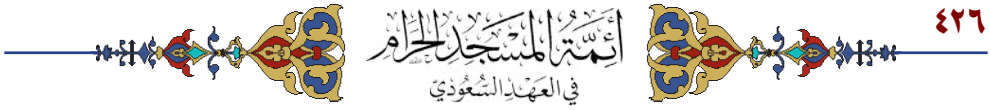 ٤٢٦
أَئِمَّةُ المَسْجِدِ الحَرَامِ
في العَهْدِ السُّعُودِيّ